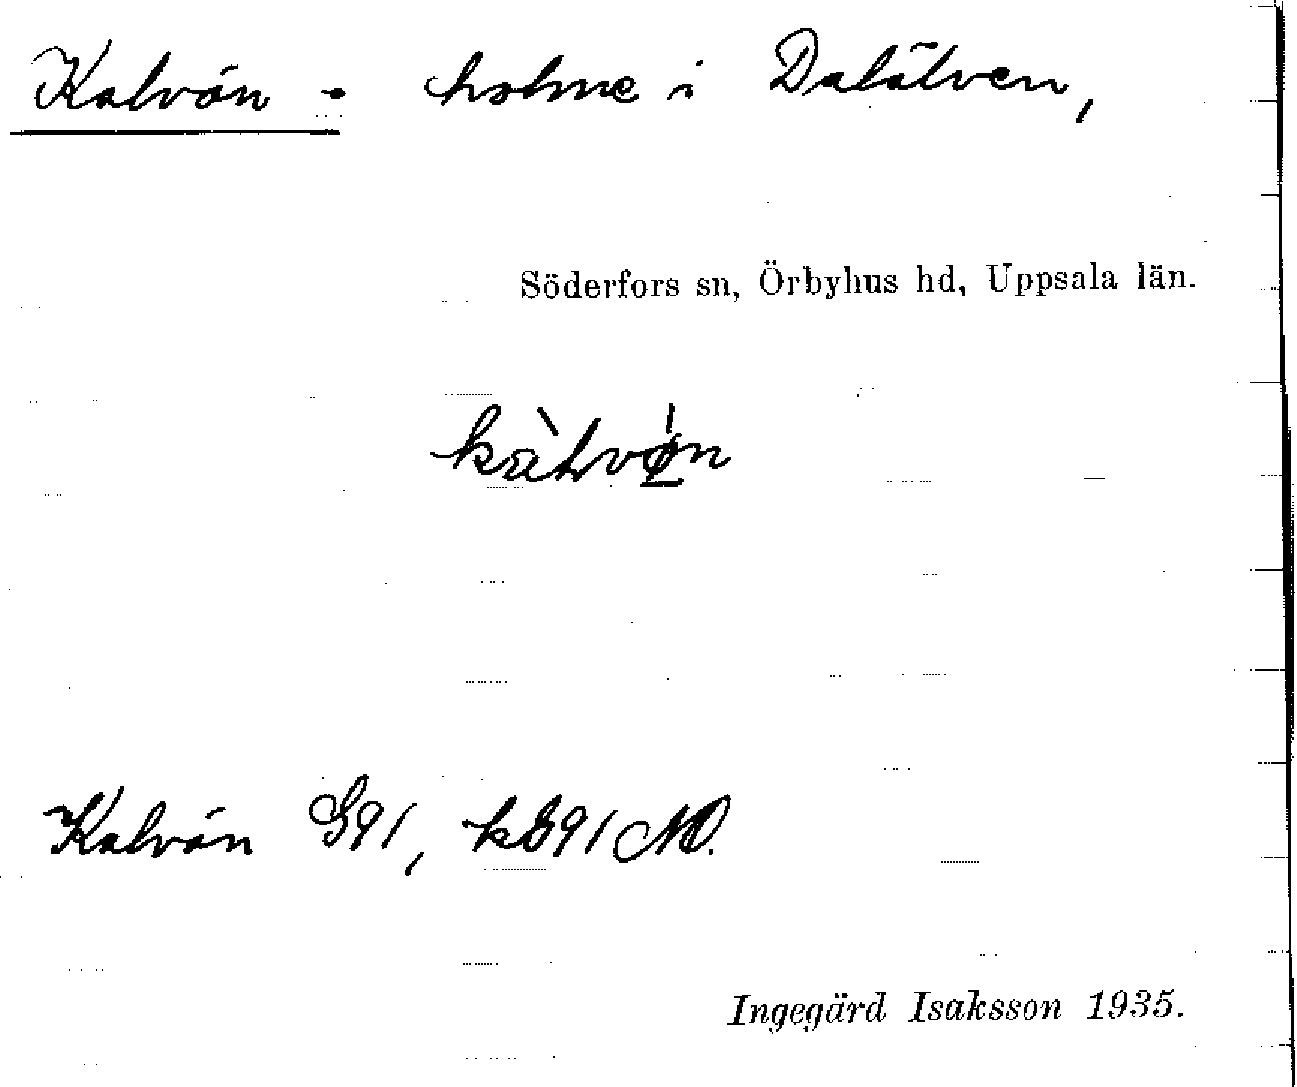 Kalvön - holme i Dalälven,
Söderfors sn, Örbyhus hd, Uppsala län.
kàlvǿn
Kalvön G91, kG91 NO.
Ingegärd Isaksson 1935.